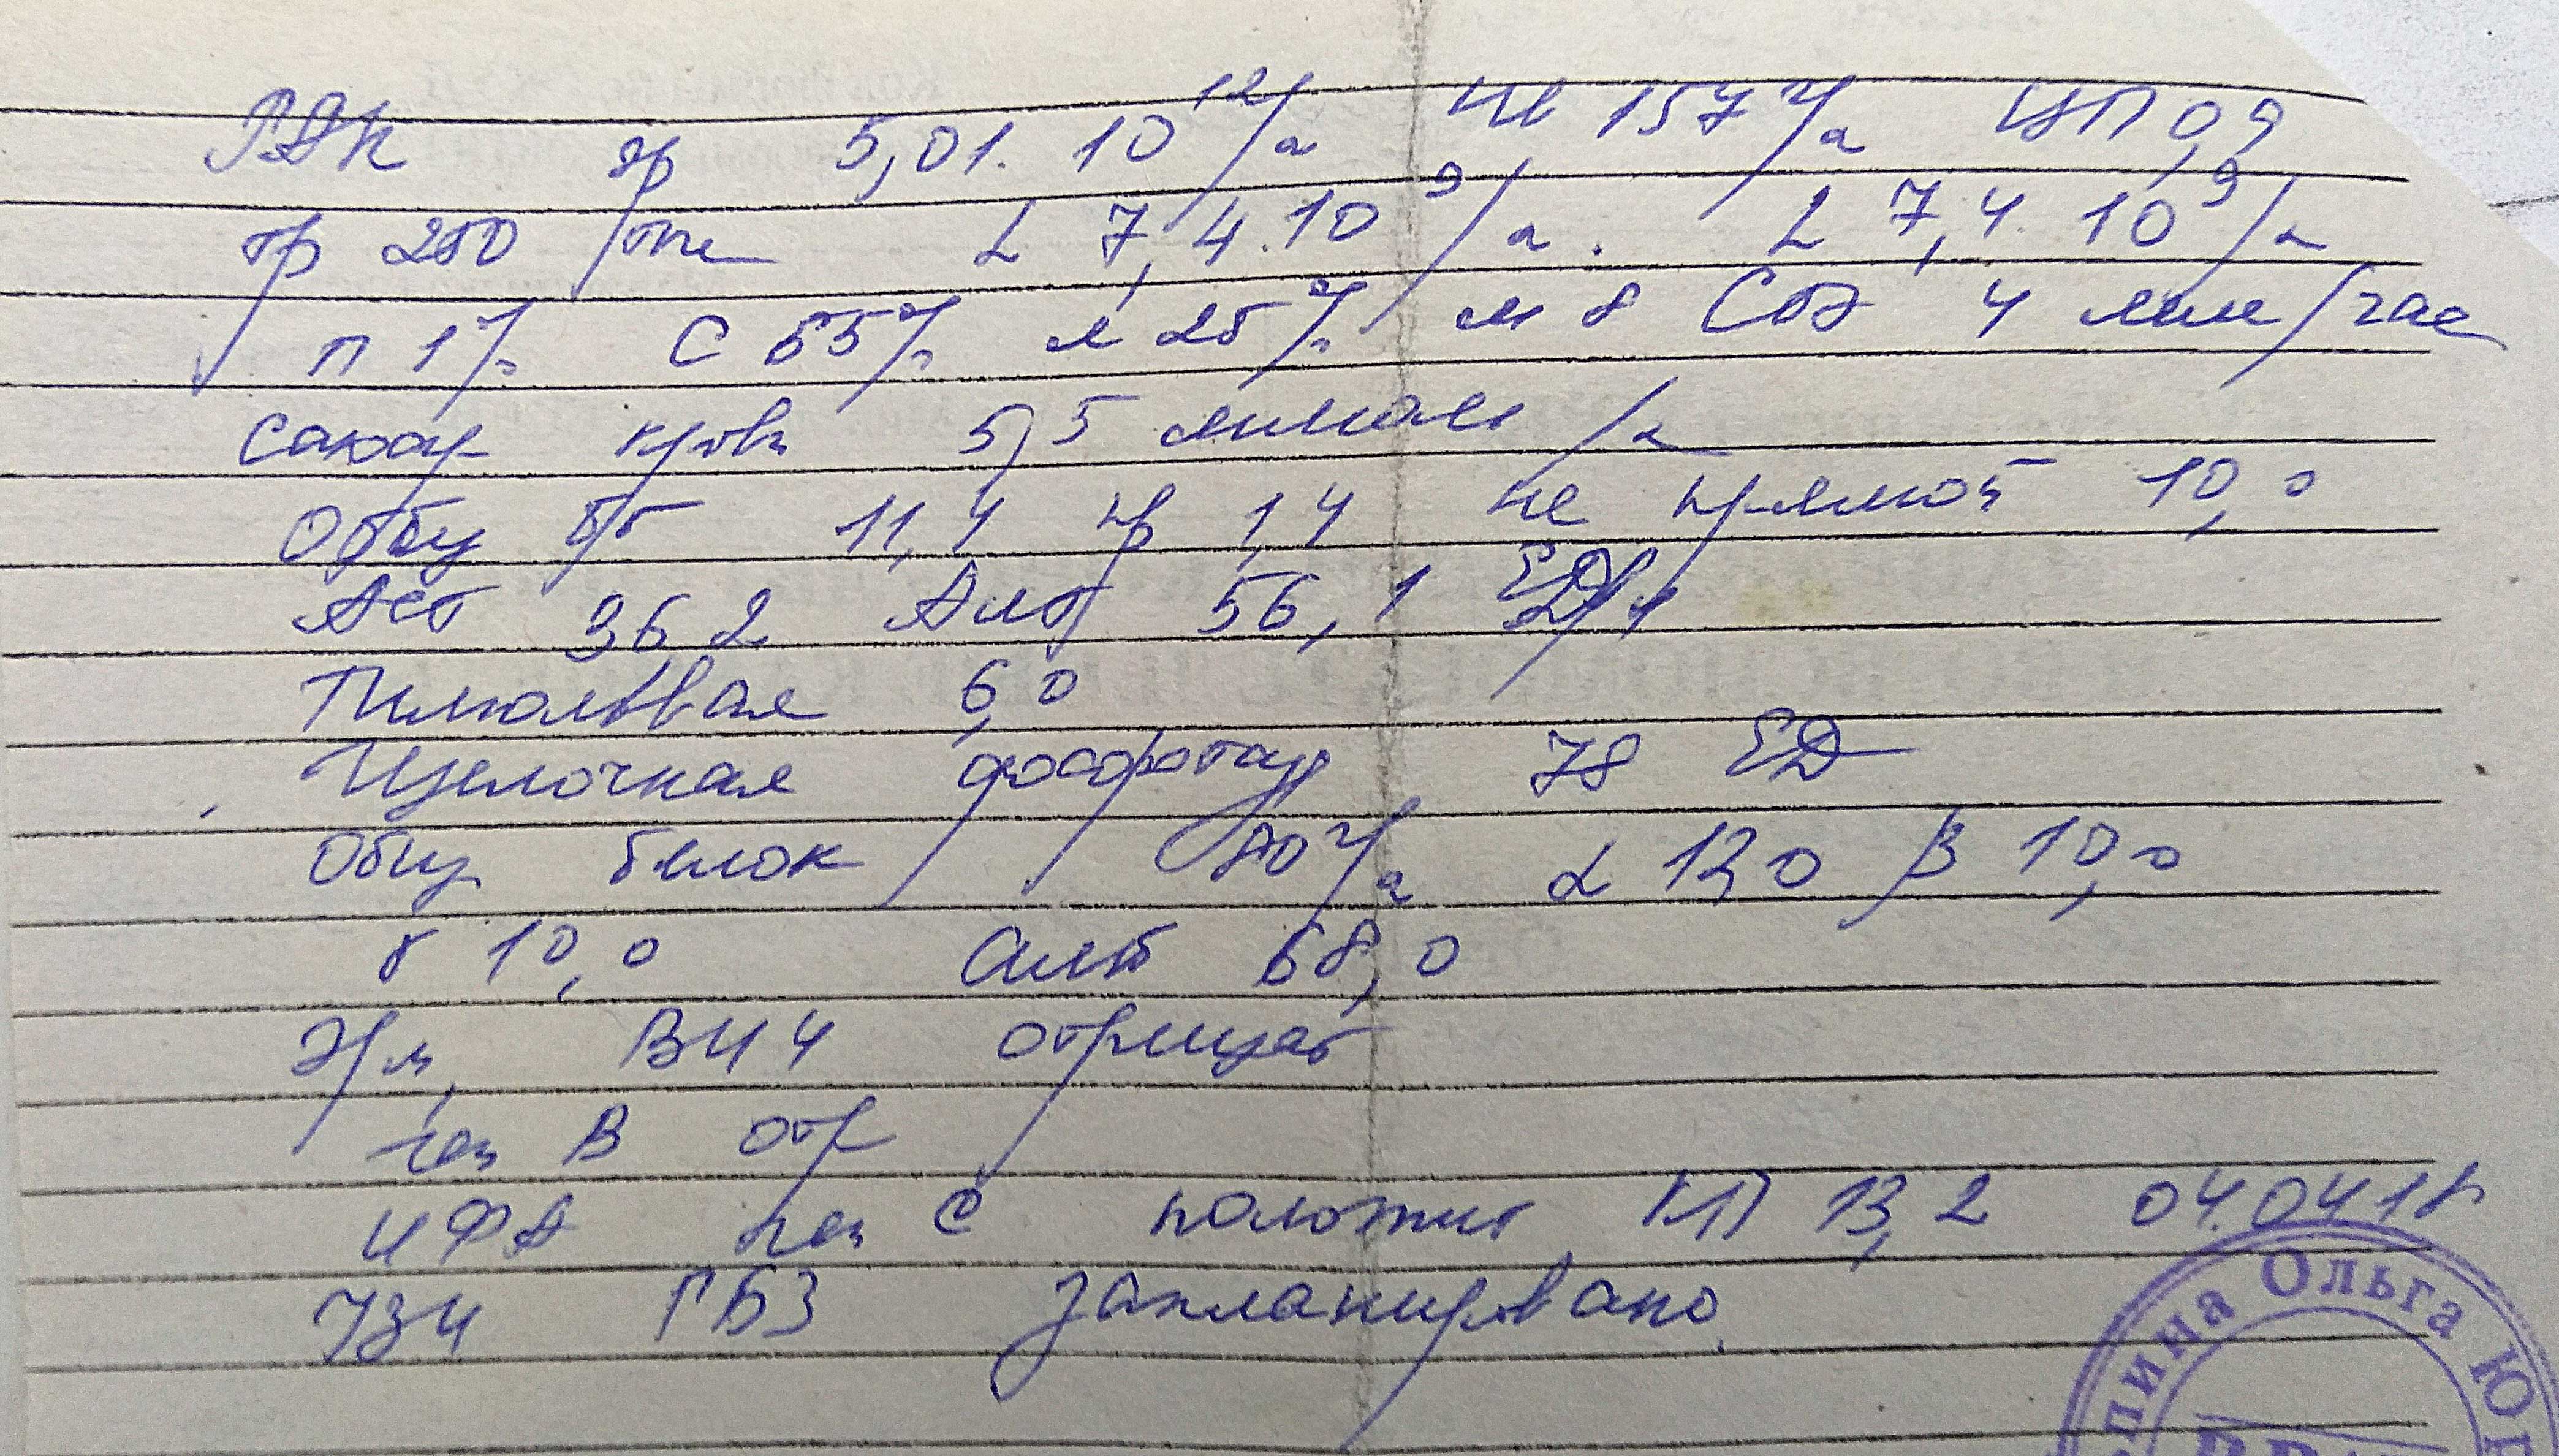 РАК эр 5,01. 10 12/л Нв 157 г/л ЦП 0,9
тр 250 тыс L 7,4. 10 9/л. L 7,4. 10 9/л
п 1% с 65% л 25% м 8 СОЭ 4 мм/час
Сахар крови 5,5 ммоль/л
Общ бр 11,4 пр 1,4 не прямой 10,0
Аст 36,2 Алт 56,1 ЕД/л
Тимоловая 6,0
Щелочная фосфотаз 78 ЕД
Общ белок 80 г/л α 12,0 β 10,0
γ 10,0 Альб 68,0
Эрм, ВИЧ отрицат
геп В отр
ИФА геп С полож КП 13,2 04.04.18
УЗИ ГБЗ запланировано.
пина Ольга Ю